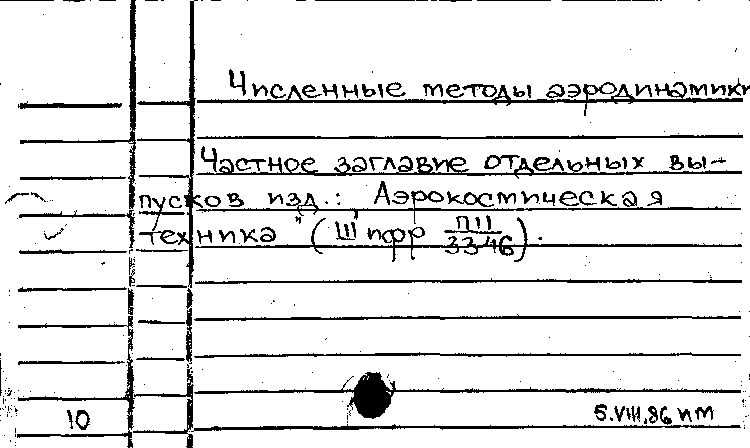 Численные методы аэродинамики
Частное заглавие отдельных вы-
пусков изд.: Аэрокосмическая
техника" (Шифр П11
3346).
10
5.VIII.86 пм